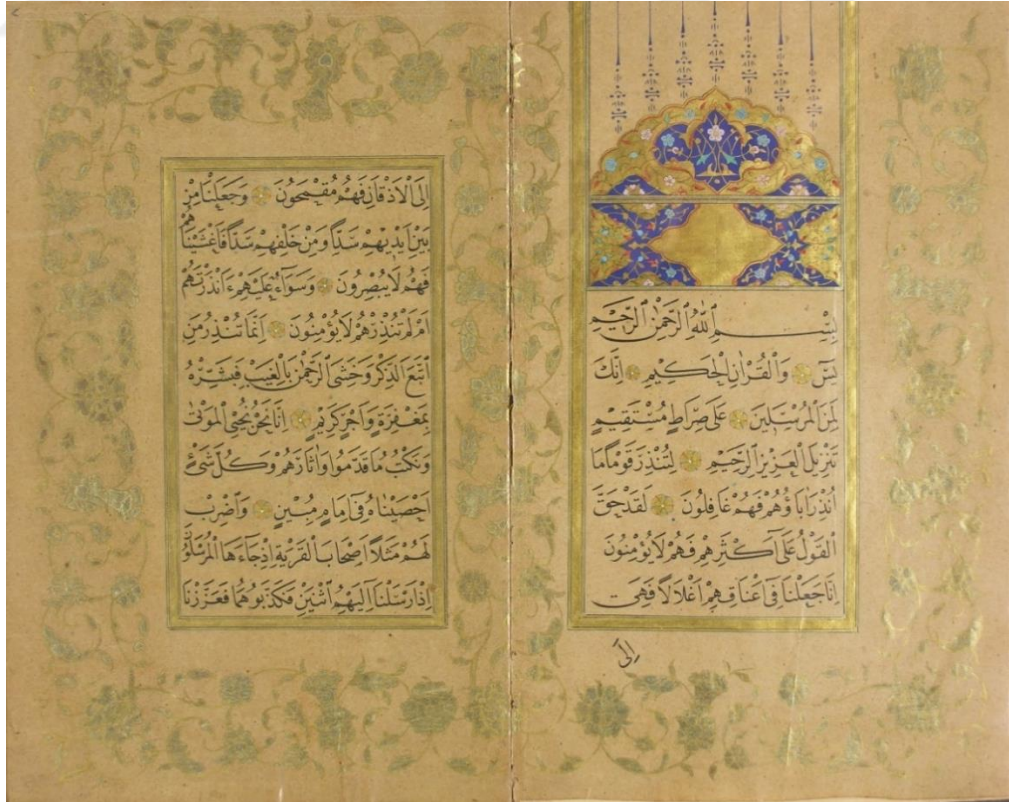 بِسْمِ اللّٰهِ الرَّحْمٰنِ الرَّحِيمِ
يٰسٓ وَالْقُرْاٰنِ الْحَكِيمِ اِنَّكَ
لَمِنَ الْمُرْسَلِينَ عَلٰى صِرَاطٍ مُسْتَقِيمٍ
تَنْزِيلَ الْعَزِيزِ الرَّحِيمِ لِتُنْذِرَ قَوْمًا مَا
اُنْذِرَ اٰبَاؤُهُمْ فَهُمْ غَافِلُونَ لَقَدْ حَقَّ
الْقَوْلُ عَلٰٓى اَكْثَرِهِمْ فَهُمْ لَا يُؤْمِنُونَ
اِنَّا جَعَلْنَا فِٓى اَعْنَاقِهِمْ اَغْلَالًا فَهِىَ
اِلَى
اِلَى الْاَذْقَانِ فَهُمْ مُقْمَحُونَ وَجَعَلْنَا مِنْ
بَيْنِ اَيْدِيهِمْ سَدًّا وَمِنْ خَلْفِهِمْ سَدًّا فَاَغْشَيْنَاهُمْ
فَهُمْ لَا يُبْصِرُونَ وَسَوَٓاءٌ عَلَيْهِمْ ءَاَنْذَرْتَهُمْ
اَمْ لَمْ تُنْذِرْهُمْ لَا يُؤْمِنُونَ اِنَّمَا تُنْذِرُ مَنِ
اتَّبَعَ الذِّكْرَ وَخَشِىَ الرَّحْمٰنَ بِالْغَيْبِ فَبَشِّرْهُ
بِمَغْفِرَةٍ وَاَجْرٍ كَرِيمٍ اِنَّا نَحْنُ نُحْيِى الْمَوْتٰى
وَنَكْتُبُ مَا قَدَّمُوا وَاٰثَارَهُمْ وَكُلَّ شَىْءٍ
اَحْصَيْنَاهُ فِٓى اِمَامٍ مُبِينٍ وَاضْرِبْ
لَهُمْ مَثَلًا اَصْحَابَ الْقَرْيَةِ اِذْ جَٓاءَهَا الْمُرْسَلُونَ
اِذْ اَرْسَلْنَٓا اِلَيْهِمُ اثْنَيْنِ فَكَذَّبُوهُمَا فَعَزَّزْنَا